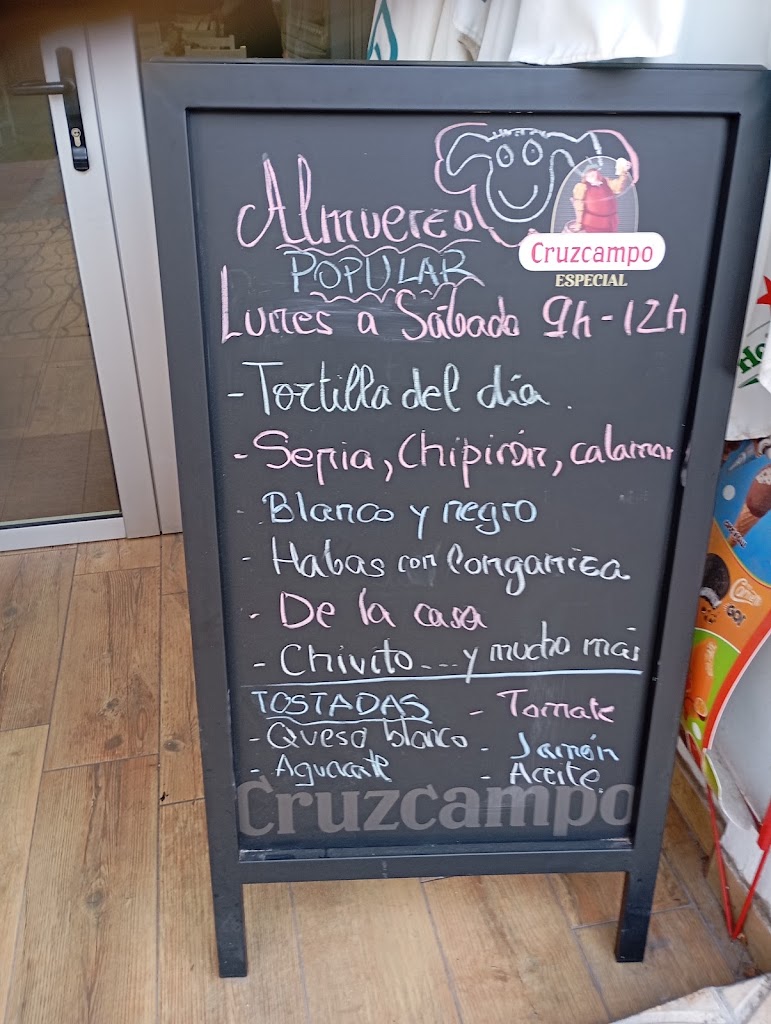 Almuerzo
POPULAR
Cruzcampo
ESPECIAL
Lunes a Sábado 9h-12h
- Tortilla del día.
- Sepia, Chipirón, calamar
- Blanco y negro
- Habas con longaniza
- De la casa
- Chivito....y mucho más
TOSTADAS - Tomate
- Queso blanco - Jamón
- Aguacate - Aceite.
Cruzcampo
GO!